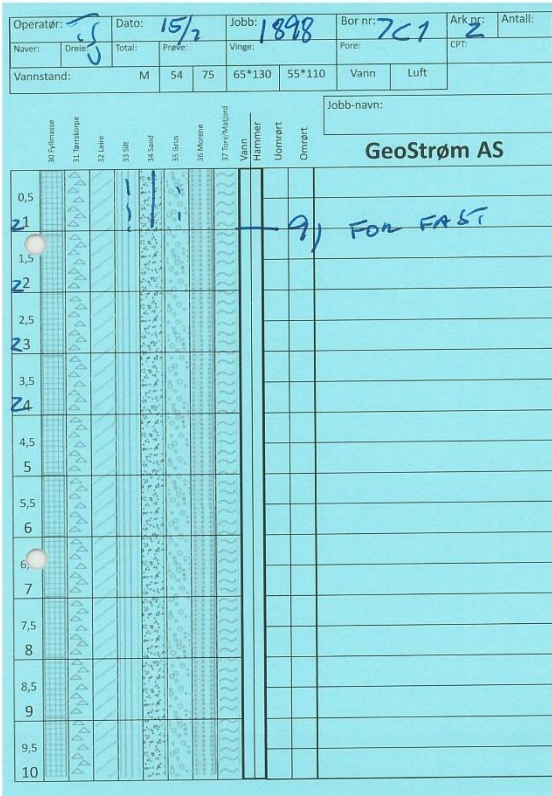 Operatør: Dato: 15/2 Jobb: 1898 Bor nr: 7C1 Ark nr: 2 Antall:
Naver: Dreie: Total: Prøve: Vinge: Pore: CPT:
Vannstand: M 54 75 65*130 55*110 Vann Luft
Jobb-navn:
30 Fyllmasse 31 Tørrskorpe 32 Leire 33 Silt 34 Sand 35 Grus 36 Morene 37 Torv/Matjord Vann Hammer Uomrørt Omrørt
GeoStrøm AS
0,5
21 9) FOR FAST
1,5
22
2,5
23
3,5
24
4,5
5
5,5
6
6,
7
7,5
8
8,5
9
9,5
10